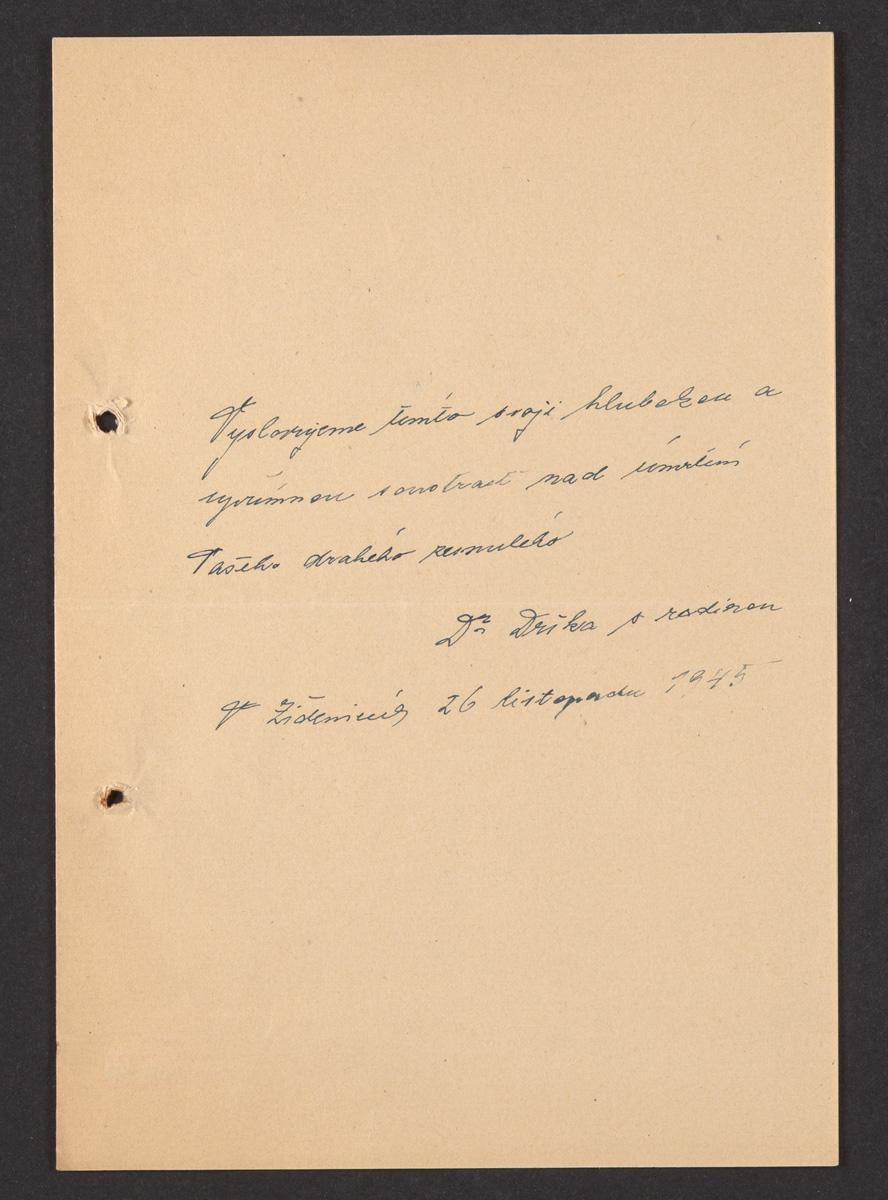 Vyslovujeme tímto svoji hlubokou a
upřímnou soustrast nad úmrtím
Vašeho drahého zesnulého
Dr Drška s rodinou
V Židenicích 26 listopadu 1945